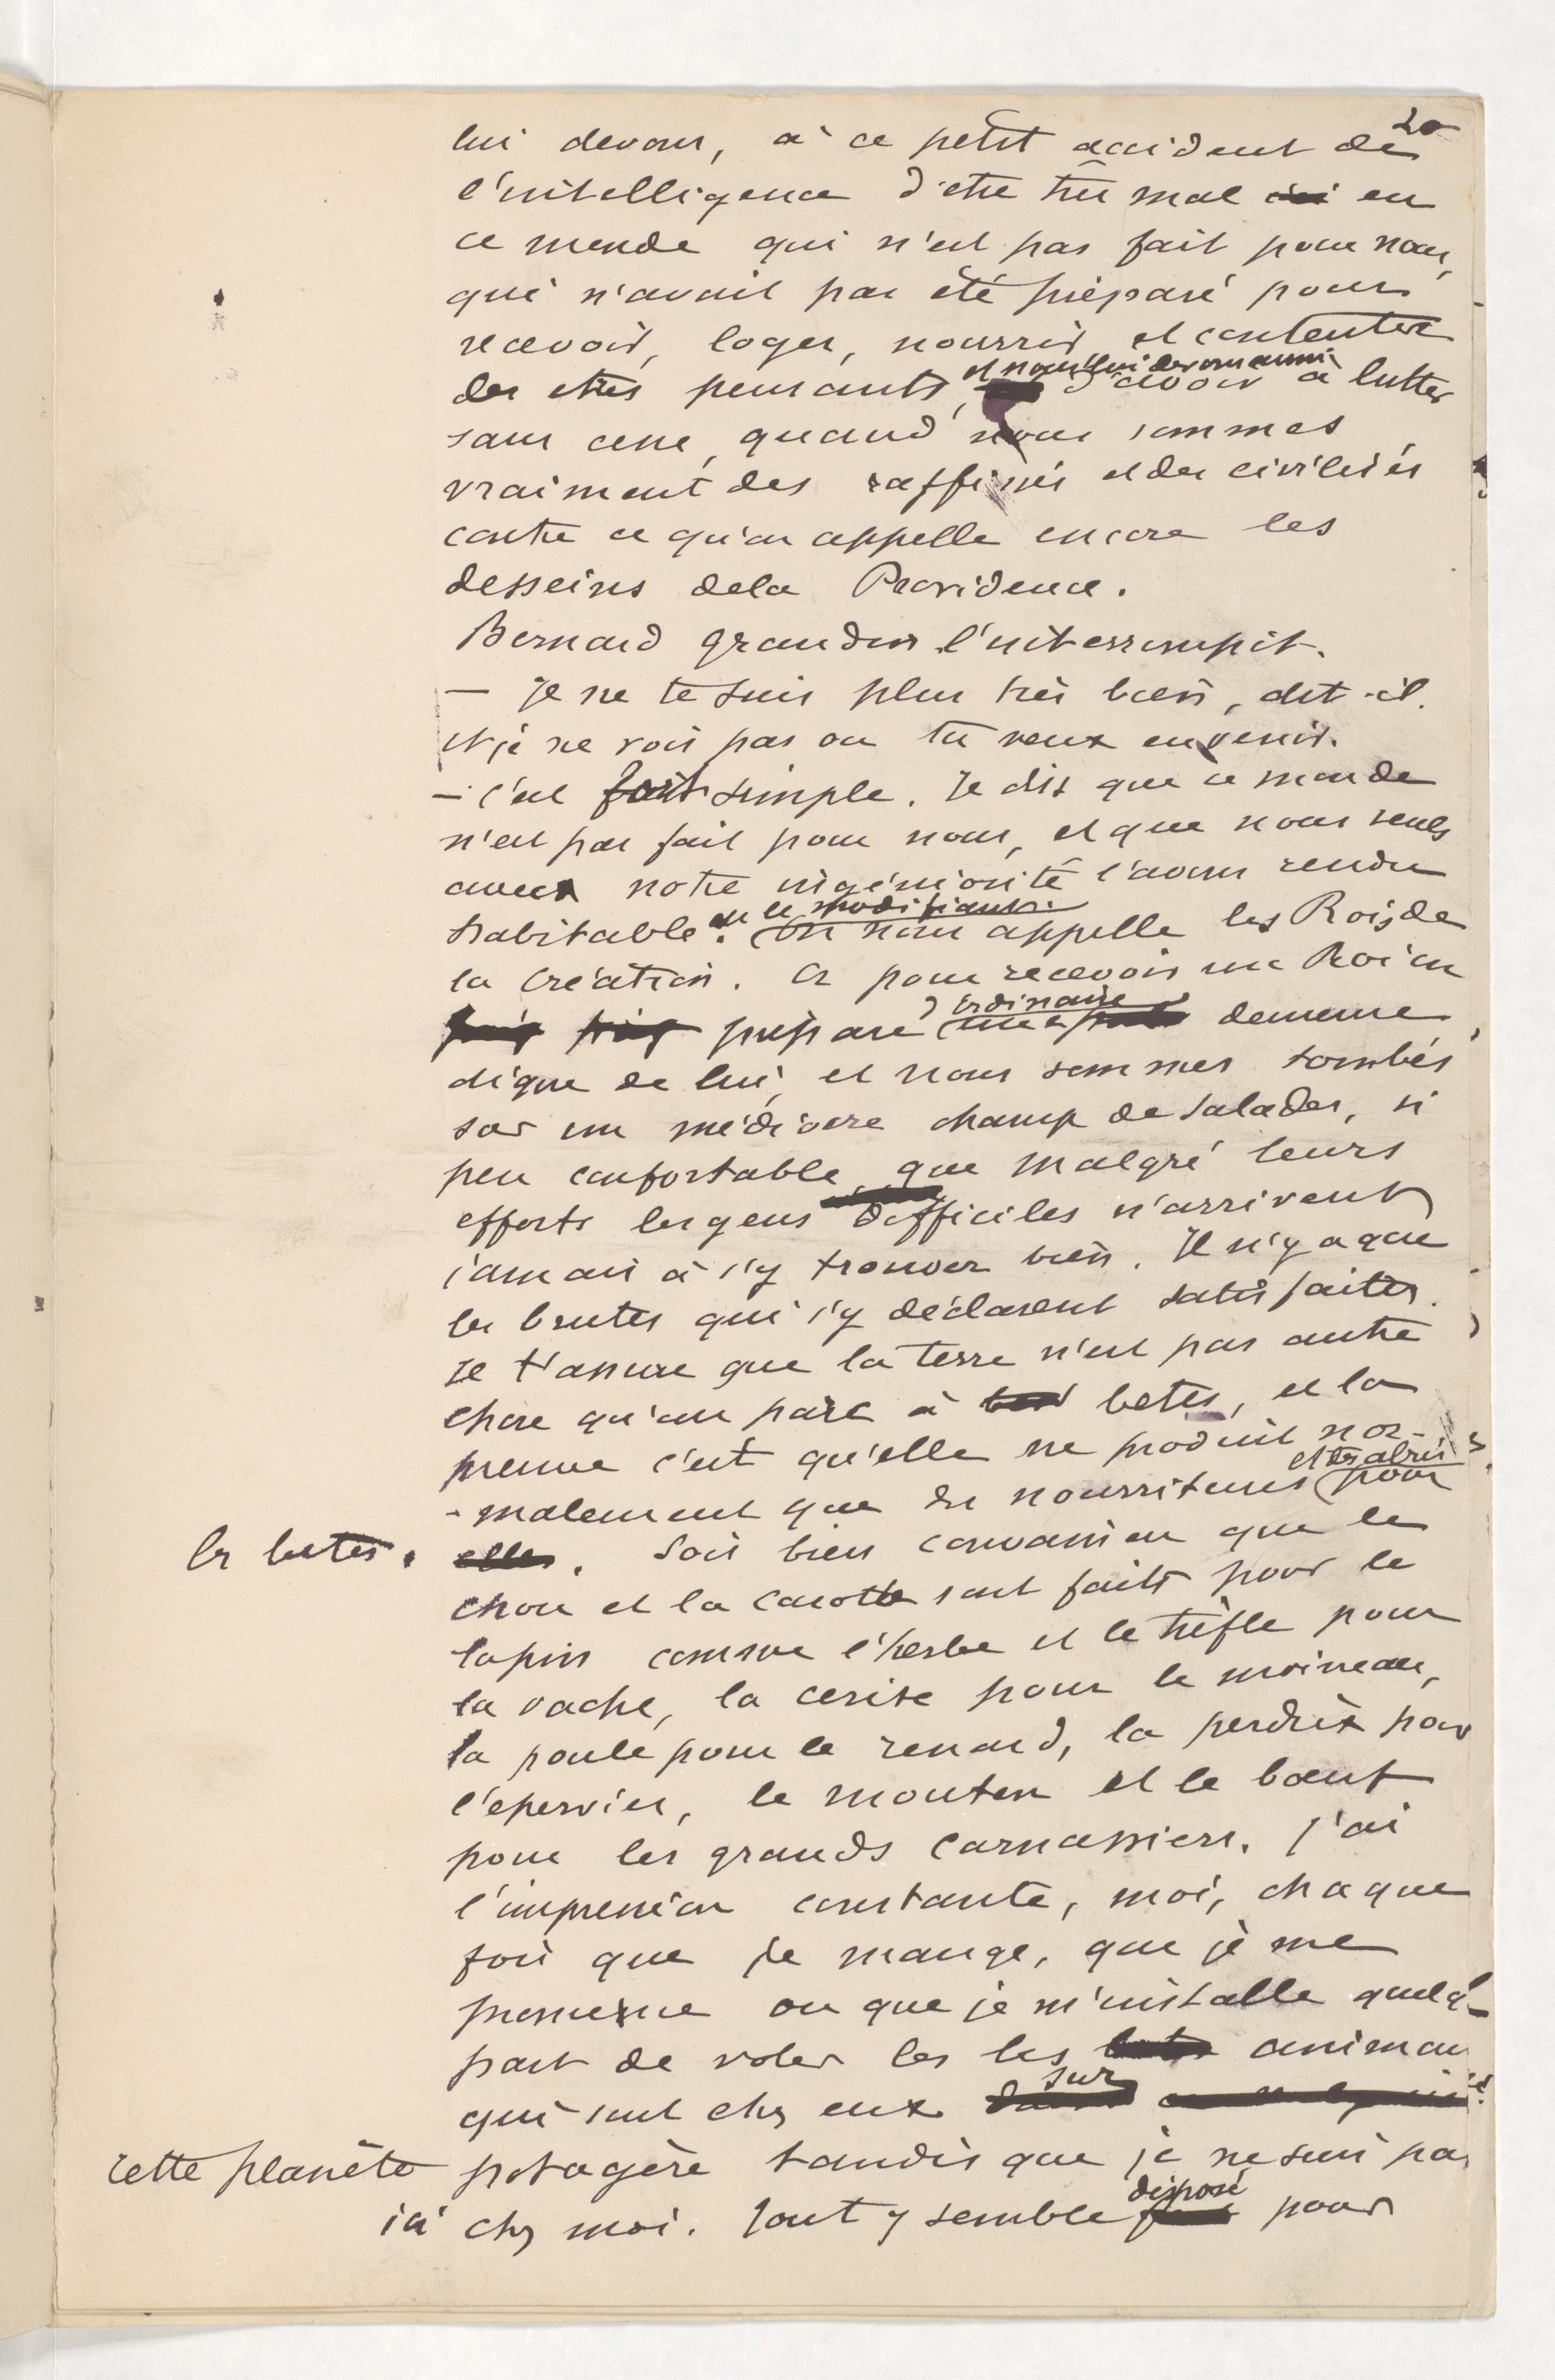 20
lui devons, à ce petit accident de
l'intelligence d'etre très mal ici en
ce monde qui n'est pas fait pour nous,
qui n'avait pas été préparé pour
recevoir, loger, nourrir et contenter
et nous lui devons aussi
des etres pensants, d'avoir à lutter
sans cesse, quand nous sommes
vraiment des raffinés et des civilisés
contre ce qu'on appelle encore les
desseins de la Providence.
Bernard grandin l'interrompit.
— Je ne te suis plus très bien, dit-il.
et je ne vois pas ou tu veux en venir.
— c'est fort simple. Je dis que ce monde
n'est pas fait pour nous, et que nous seuls
avec notre ingéniosité l'avons rendu
en le modifiant.
habitable. On nous appelle les Rois de
la Création. Or pour recevoir un Roi on
ordinaire
prépare une demeure
digne de lui, et nous sommes tombés
sur un médiocre champ de salades, si
peu confortable, que malgré leurs
efforts les gens difficiles n'arrivent
jamais à s'y trouver bien. Il n'y a que
les brutes qui s'y déclarent satisfaites.
Je t'assure que la terre n'est pas autre
chose qu'un parc à betes, et la
preuve c'est qu'elle ne produit nor-
et des abris
-malement que des nourritures pour
les betes. elles. Sois bien convaincu que le
chou et la carotte sont faits pour le
lapin comme l'herbe et le trèfle pour
la vache, la cerise pour le moineau,
la poule pour le renard, la perdrix pour
l'epervier, le mouton et le bœuf
pour les grands carnassiers. J'ai
l'impression constante, moi, chaque
fois que je mange, que je me
promène ou que je m'installe quelq-
part de voler les les betes animau
sur
qui sont chez eux
cette planète potagère tandis que je ne suis pas
disposé
ici chez moi. Tout y semble pour